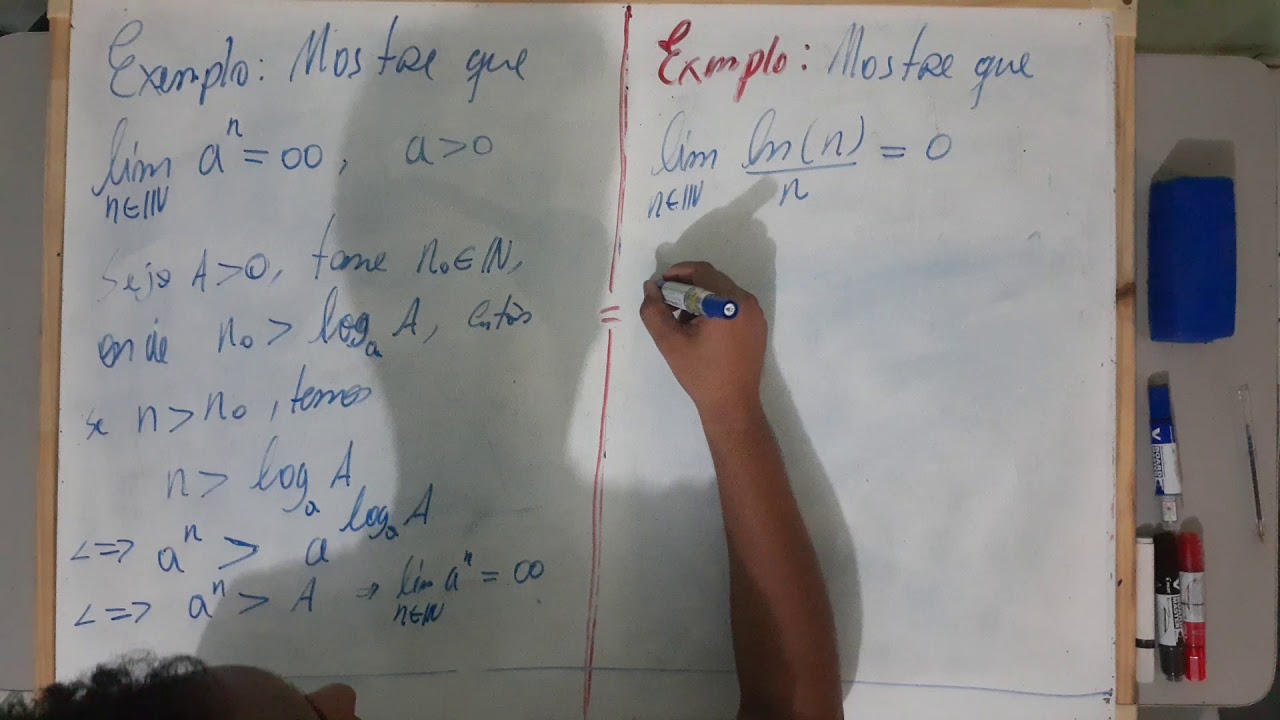 Exemplo: Mostre que
lim aⁿ = ∞, a > 0
n∈ℕ
Seja A > 0, tome n₀ ∈ ℕ,
onde n₀ > logₐ A, então
se n > n₀, temos
n > logₐ A
<=> aⁿ > a^(logₐ A)
<=> aⁿ > A => lim aⁿ = ∞
n∈ℕ
Exmplo: Mostre que
lim ln(n)/n = 0
n∈ℕ
=